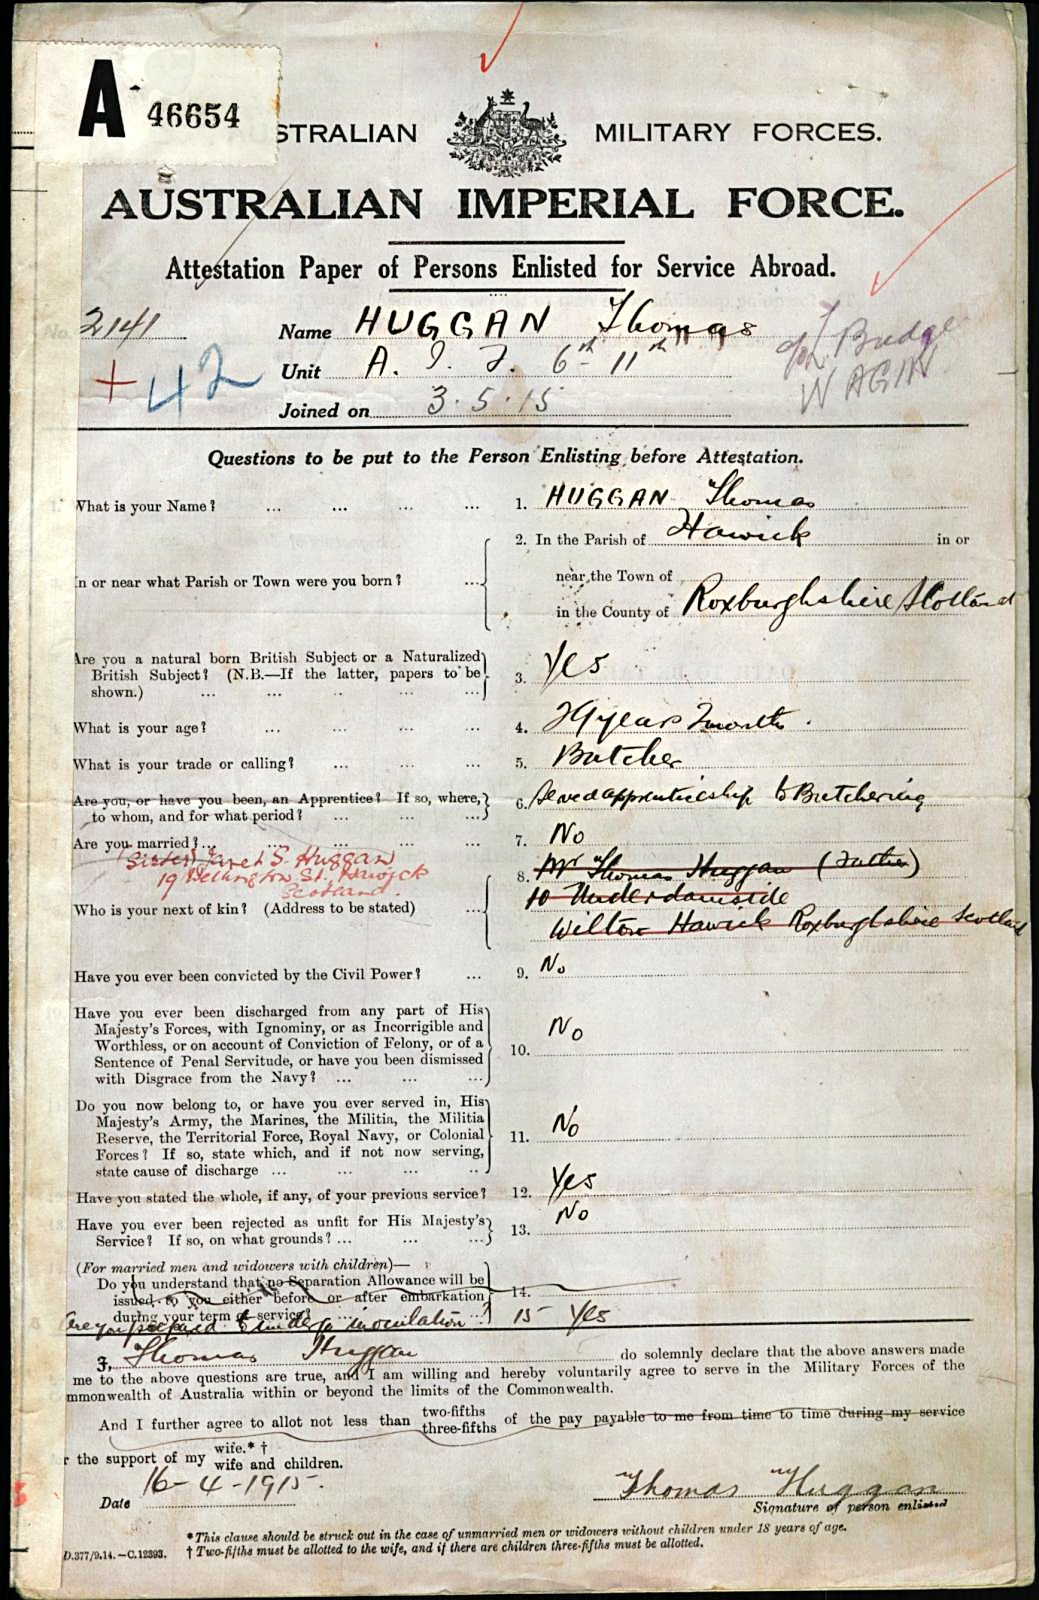 A 46654
STRALIAN MILITARY FORCES.
AUSTRALIAN IMPERIAL FORCE.
Attestation Paper of Persons Enlisted for Service Abroad.
No. 2141
Name HUGGAN Thomas
+ 42
Unit A. I. F. 6th 11th
Budge
WAGIN
Joined on 3.5.15
Questions to be put to the Person Enlisting before Attestation.
What is your Name? ... ... ... ... 1. HUGGAN Thomas
In or near what Parish or Town were you born? ... 2. In the Parish of Hawick in or
near the Town of
in the County of Roxburghshire Scotland
Are you a natural born British Subject or a Naturalized
British Subject? (N.B.—If the latter, papers to be
shown.) ... ... .. ... ... 3. Yes
What is your age? ... ... ... ... 4. 29 years 2 months.
What is your trade or calling? ... ... ... 5. Butcher
Are you, or have you been, an Apprentice? If so, where,
to whom, and for what period? ... ... ... 6. Served apprenticeship to Butchering
Are you married? ... ... ... ... ... 7. No
(Sister) Janet S. Huggan
19 Wellington St. Hawick
Scotland.
Who is your next of kin? (Address to be stated) ... 8. Mr Thomas Huggan (Father)
10 Underdamside
Wilton Hawick Roxburghshire Scotland
Have you ever been convicted by the Civil Power? ... 9. No
Have you ever been discharged from any part of His
Majesty's Forces, with Ignominy, or as Incorrigible and
Worthless, or on account of Conviction of Felony, or of a
Sentence of Penal Servitude, or have you been dismissed
with Disgrace from the Navy? ... ... ... 10. No
Do you now belong to, or have you ever served in, His
Majesty's Army, the Marines, the Militia, the Militia
Reserve, the Territorial Force, Royal Navy, or Colonial
Forces? If so, state which, and if not now serving,
state cause of discharge ... ... ... .. 11. No
Have you stated the whole, if any, of your previous service? 12. Yes
Have you ever been rejected as unfit for His Majesty's
Service? If so, on what grounds? ... ... ... 13. No
(For married men and widowers with children)—
Do you understand that no Separation Allowance will be
issued to you either before or after embarkation
during your term of service? ... ... 14.
Are you prepared to undergo inoculation? 15 Yes
I, Thomas Huggan do solemnly declare that the above answers made
me to the above questions are true, and I am willing and hereby voluntarily agree to serve in the Military Forces of the
mmonwealth of Australia within or beyond the limits of the Commonwealth.
And I further agree to allot not less than two-fifths three-fifths of the pay payable to me from time to time during my service
r the support of my wife.* † wife and children.
Date 16-4-1915. Thomas Huggan
Signature of person enlisted
* This clause should be struck out in the case of unmarried men or widowers without children under 18 years of age.
† Two-fifths must be allotted to the wife, and if there are children three-fifths must be allotted.
D.377/9.14.—C.12393.